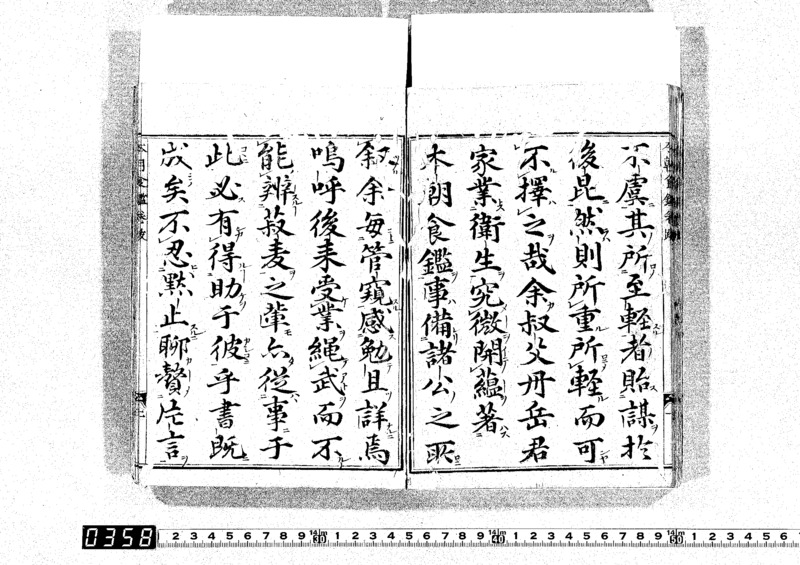 不虞其所至軽者貽謀於
後昆然則所重所軽而可
不擇之哉余叔父丹岳君
家業衛生究微開蘊著
本朝食鑑事備諸公之所
叙余毎管窺感勉且詳焉
嗚呼後来受業繩武而不
能辨菽麦之輩亦従事于
此必有得助于彼乎書既
成矣不忍黙止聊贅片言
0358